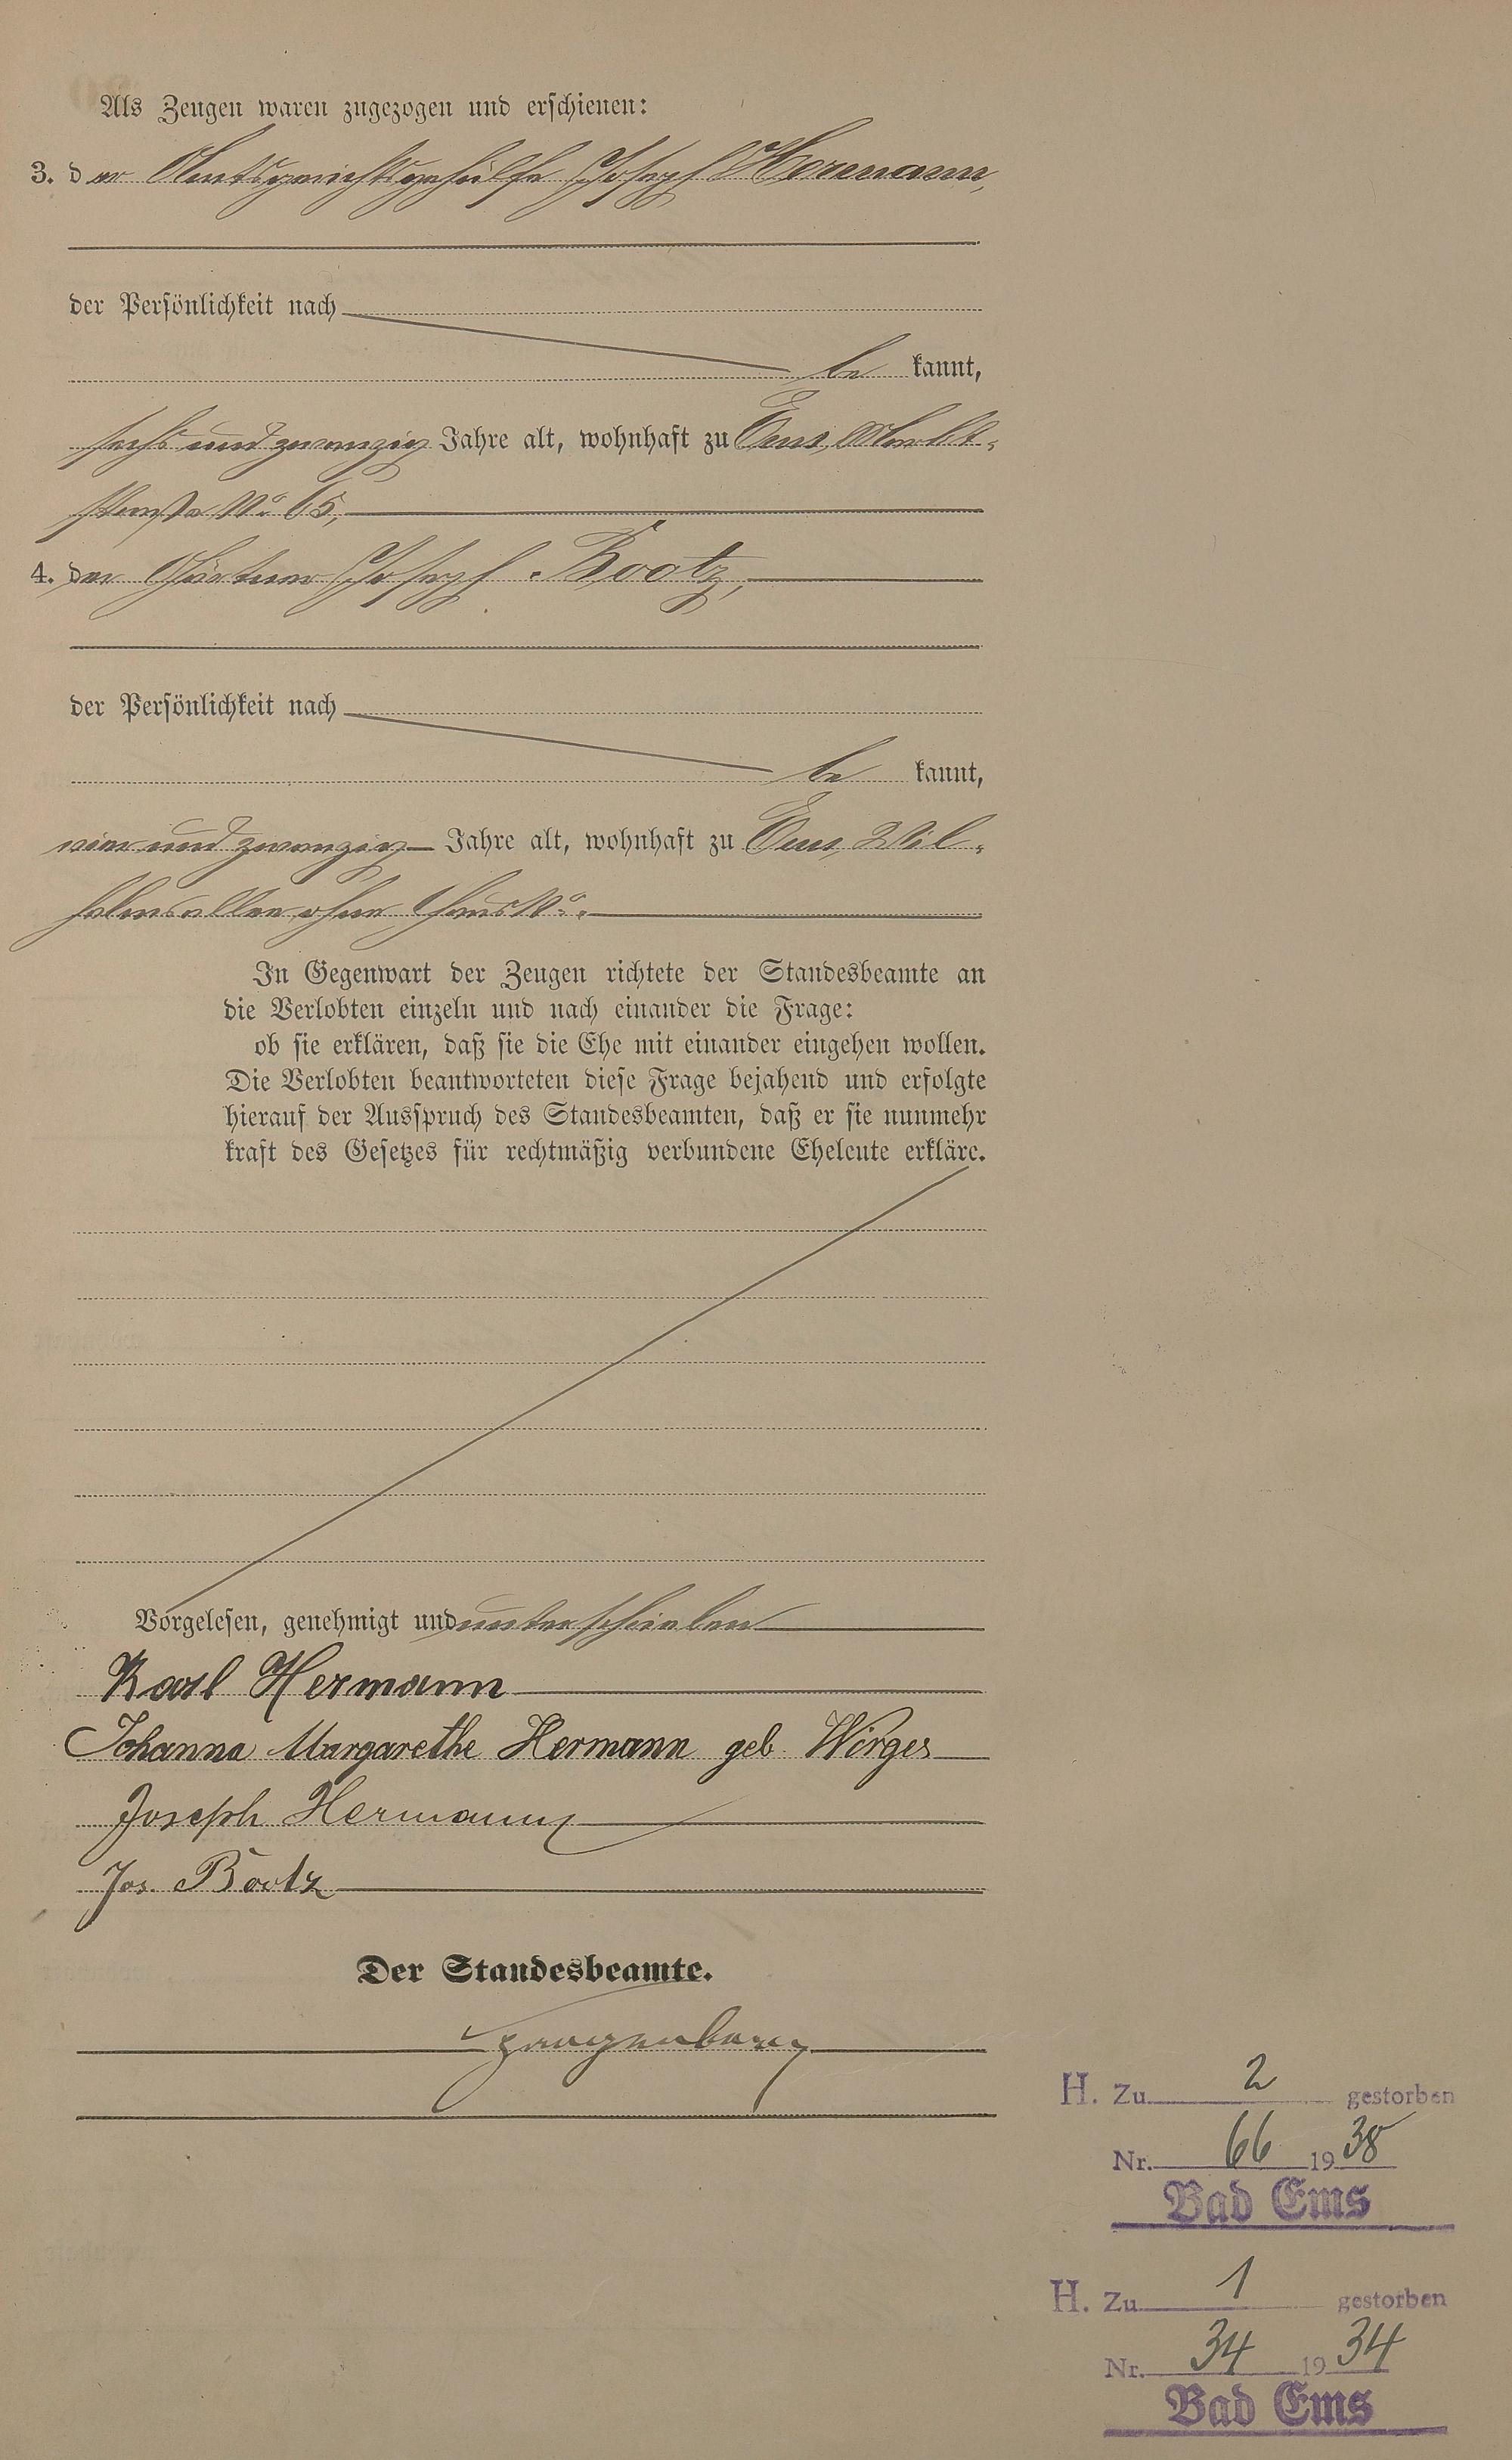 Als Zeugen waren zugezogen und erschienen:
3. der Amtsgerichtsgehülfe Joseph Hermann,
der Persönlichkeit nach
be kannt,
sechs und zwanzig Jahre alt, wohnhaft zu Ems,
straße No. 65,
4. der Gärtner Joseph Bootz,
der Persönlichkeit nach
be kannt,
vier und zwanzig Jahre alt, wohnhaft zu Ems, Wil-
helmsallee ohne Haus No.
In Gegenwart der Zeugen richtete der Standesbeamte an
die Verlobten einzeln und nach einander die Frage:
ob sie erklären, daß sie die Ehe mit einander eingehen wollen.
Die Verlobten beantworteten diese Frage bejahend und erfolgte
hierauf der Ausspruch des Standesbeamten, daß er sie nunmehr
kraft des Gesetzes für rechtmäßig verbundene Eheleute erkläre.
Vorgelesen, genehmigt und unterschrieben
Karl Hermann
Johanna Margarethe Hermann geb. Wirges
Joseph Hermann
Jos. Bootz
Der Standesbeamte.
H. Zu 2 gestorben
Nr. 66 1938
Bad Ems
H. Zu 1 gestorben
Nr. 34 1934
Bad Ems